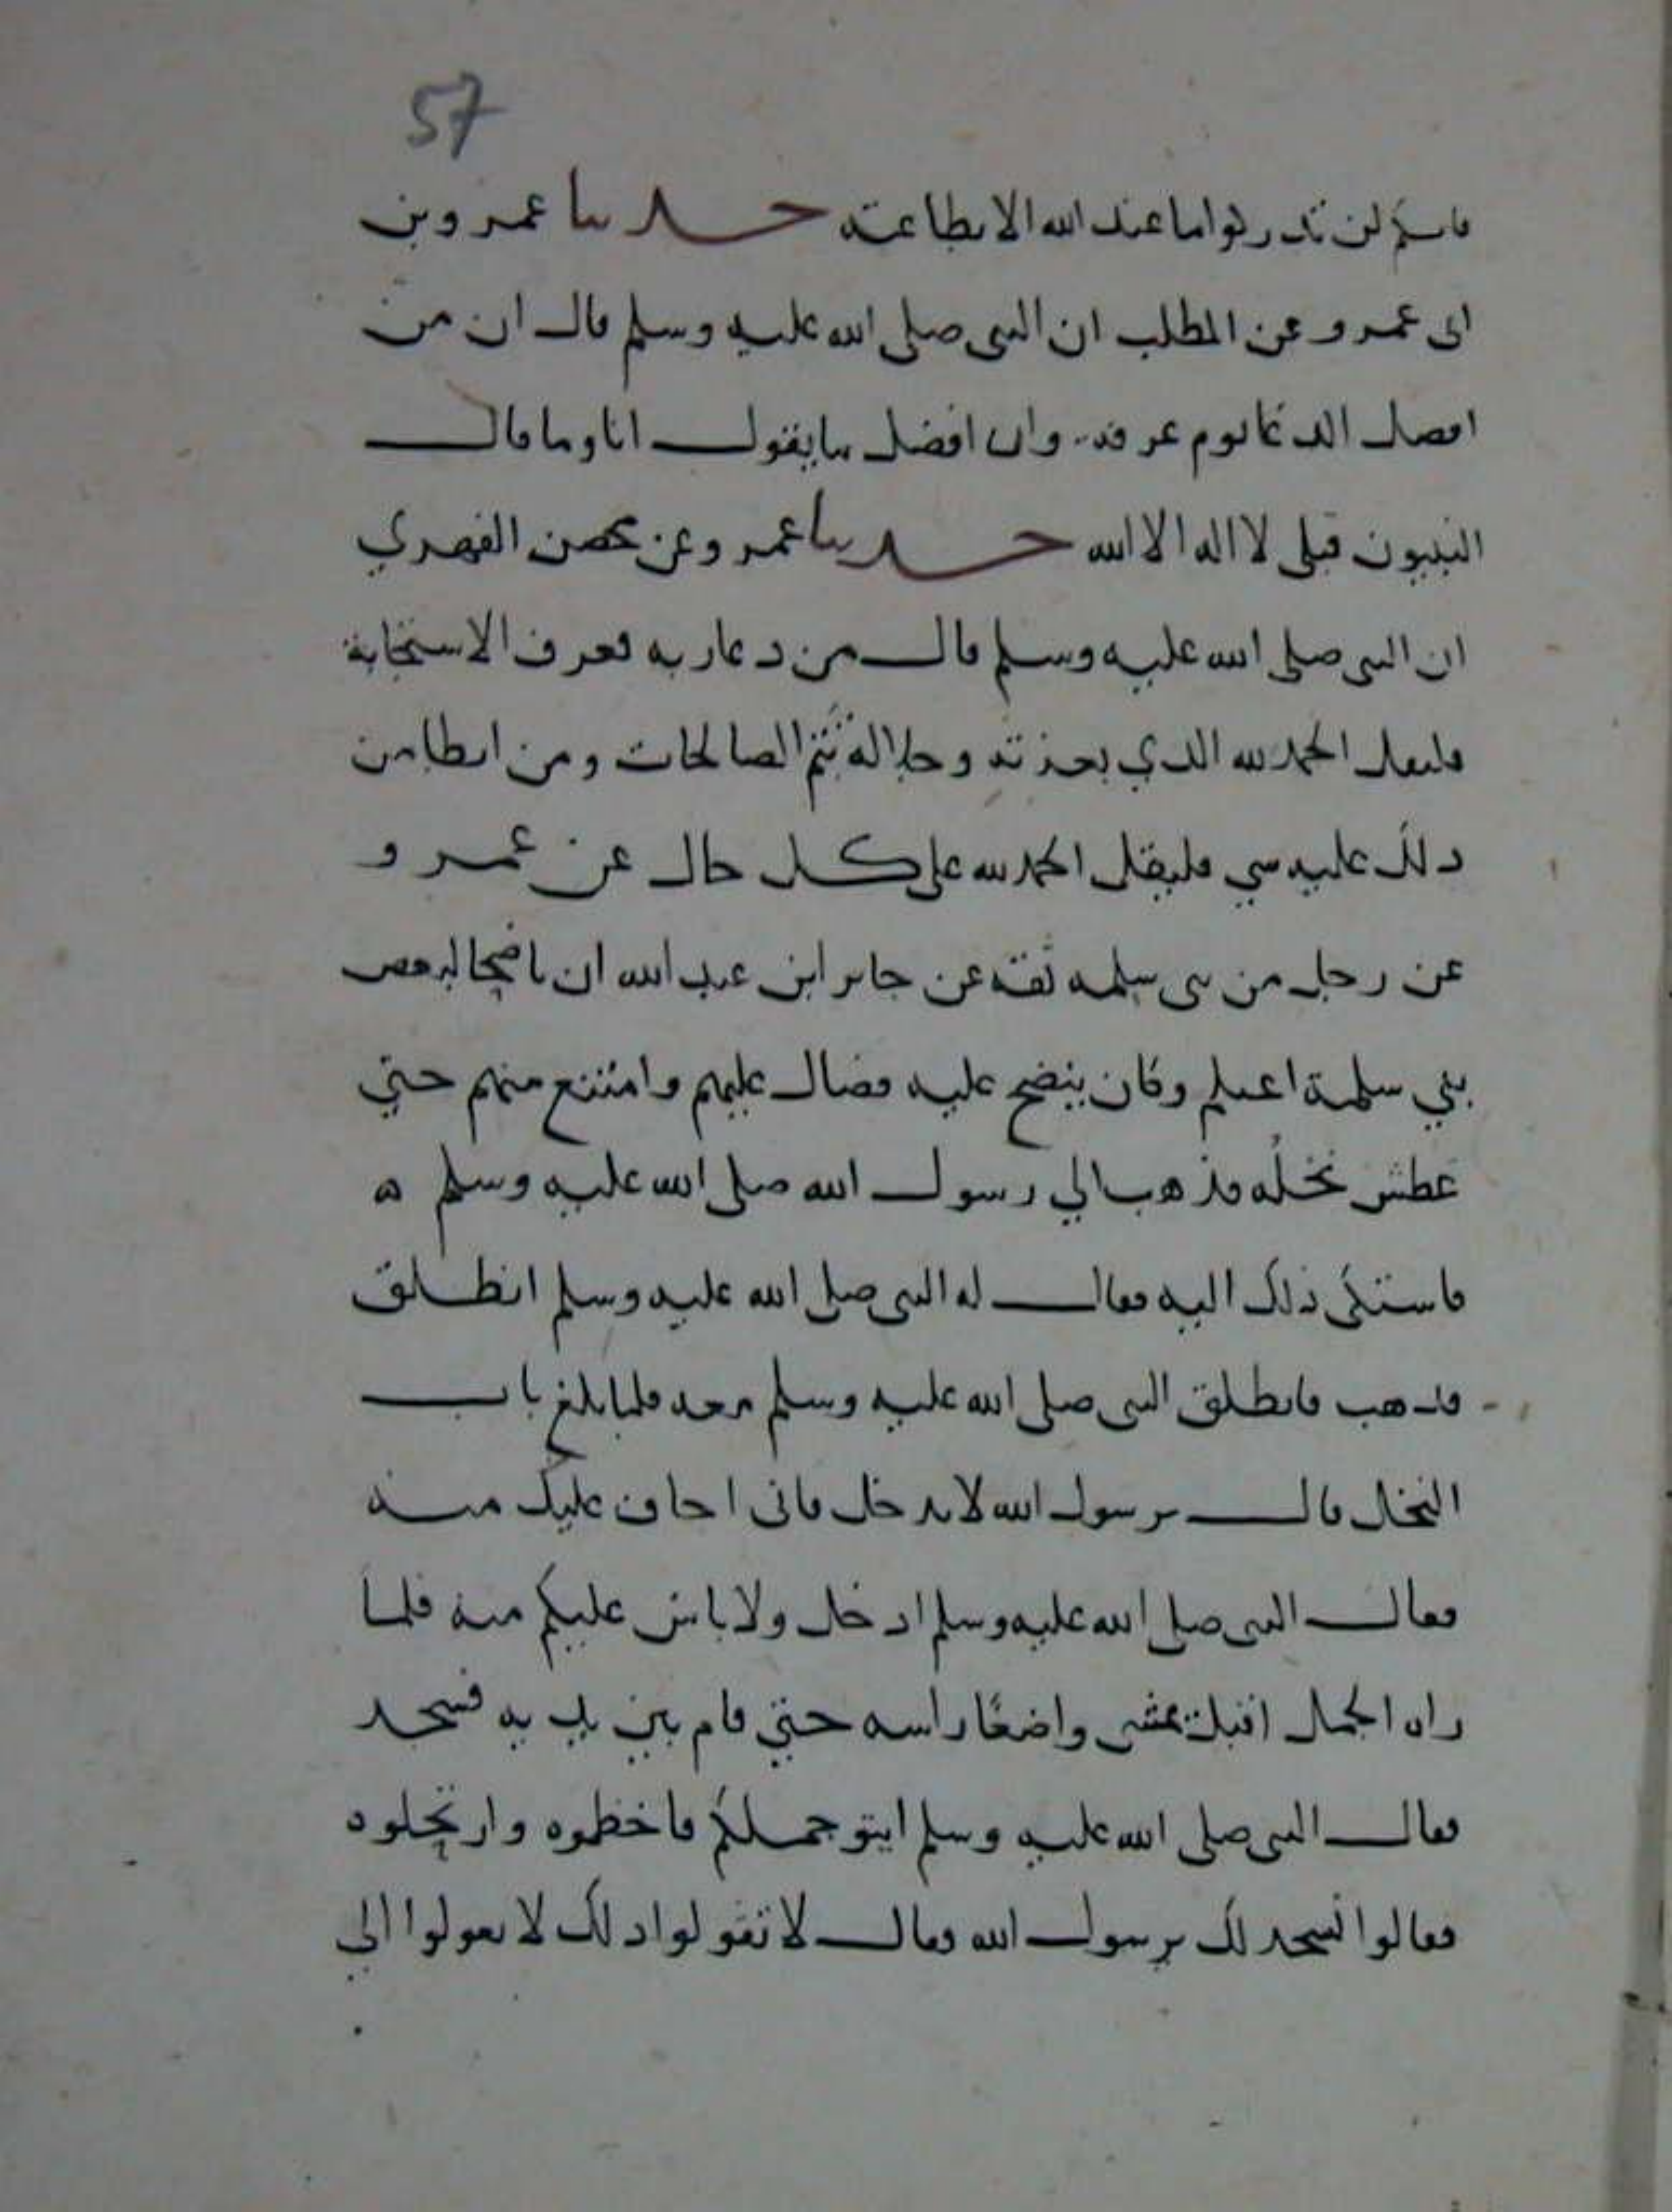 57
فانكم لن تدركوا ما عند الله الا بطاعته حدثنا عمرو بن
ابى عمرو عن المطلب ان النبى صلى الله عليه وسلم قال ان من
افضل الدعا يوم عرفه وان افضل ما يقول انا وما قال
النبيون قبلى لا اله الا الله حدثنا عمرو عن محصن الفهري
ان النبى صلى الله عليه وسلم قال من دعا ربه فعرف الاستجابة
فليقل الحمد لله الذي بعزته وجلاله تتم الصالحات ومن ابطا من
ذلك عليه شي فليقل الحمد لله على كل حال عن عمرو
عن رجل من بنى سلمه ثقه عن جابر ابن عبد الله ان ناضحا لبعض
بني سلمة اغتلم وكان ينضح عليه فصال عليهم وامتنع منهم حتي
عطش نخلُه فذهب الي رسول الله صلى الله عليه وسلم ه
فاشتكى ذلك اليه فقال له النبى صلى الله عليه وسلم انطلق
فذهب فانطلق النبى صلى الله عليه وسلم معه فلما بلغ باب
النخل قال يرسول الله لا تدخل فانى اخاف عليك منه
فقال النبى صلى الله عليه وسلم ادخل ولا باس عليكم منه فلما
راه الجمل اقبل يمشى واضعًا راسه حتي قام بين يديه فسجد
فقال النبى صلى الله عليه وسلم ايتو جملكم فاخطموه وارتحلوه
فقالوا نسجد لك يرسول الله فقال لا تقولوا ذلك لا تقولوا الي